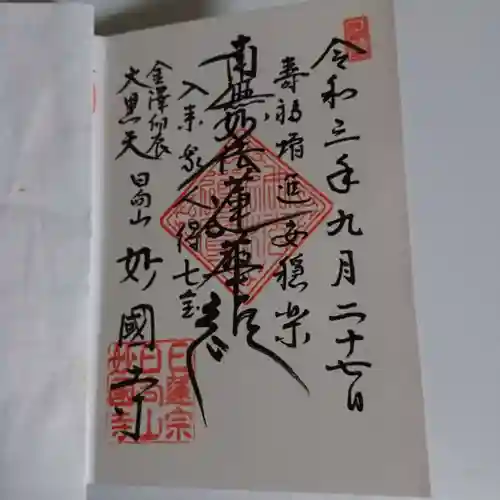 令和三年九月二十七日
壽福増進安穩楽
南無妙法蓮華経
入来衆人得七宝
金澤卯辰
大黒天
日向山
妙國寺
日蓮宗
日向山
妙國寺